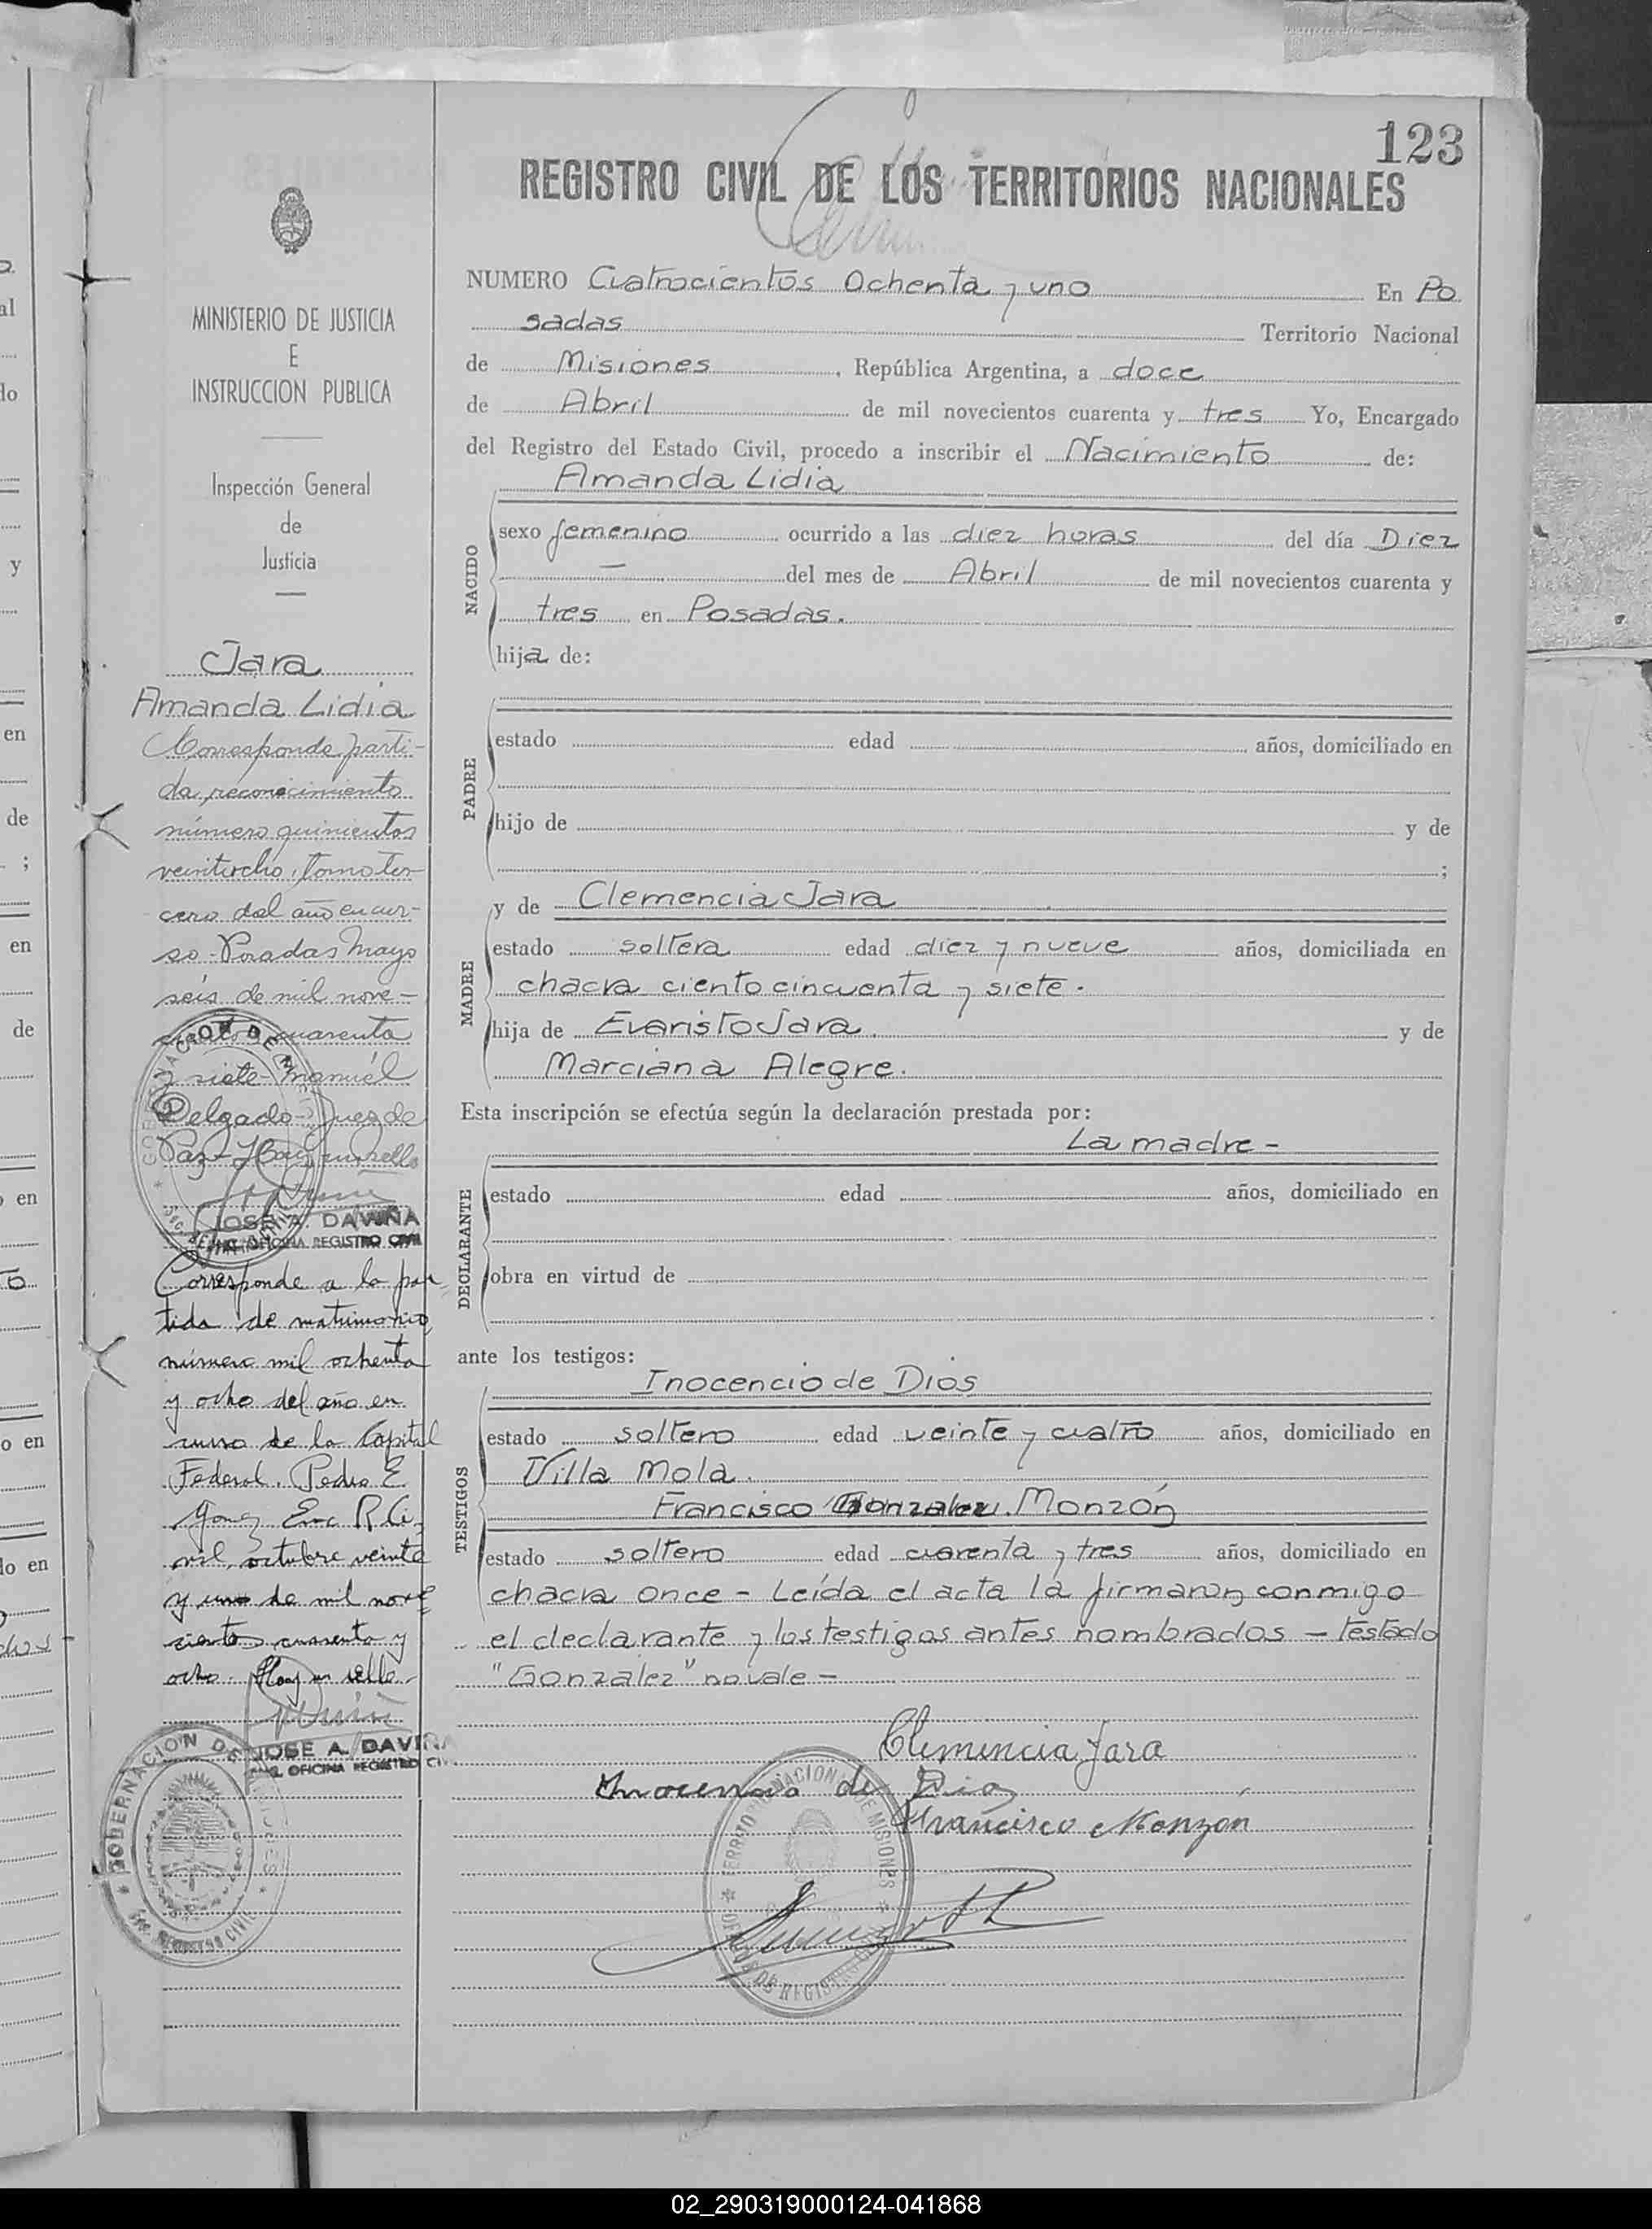 123
REGISTRO CIVIL DE LOS TERRITORIOS NACIONALES
MINISTERIO DE JUSTICIA
E
INSTRUCCION PUBLICA
Inspección General
de
Justicia
Jara
Amanda Lidia
Corresponde parti-
da reconocimiento
número quinientos
veintiocho, tomo ter-
cero del año en cur-
so - Posadas Mayo
seis de mil nove-
cientos cuarenta
y siete - Manuel
Delgado - Juez de
Paz - Hay un sello
JOSE A. DAVIÑA
OFICINA REGISTRO CIVIL
Corresponde a la par
tida de matrimonio
número mil ochenta
y ocho del año en
curso de la Capital
Federal. Pedro E.
Enc R. Ci-
vil, octubre veinte
y uno de mil nove
cientos cuarenta y
ocho. Hay un sello.
JOSE A. DAVIÑA
OFICINA REGISTRO CIV
GOBERNACION DE MISIONES
REGISTRO CIVIL
NUMERO Cuatrocientos Ochenta y uno En Po
sadas Territorio Nacional
de Misiones, República Argentina, a doce
de Abril de mil novecientos cuarenta y tres Yo, Encargado
del Registro del Estado Civil, procedo a inscribir el Nacimiento de:
Amanda Lidia
NACIDO
sexo femenino ocurrido a las diez horas del día Diez
— del mes de Abril de mil novecientos cuarenta y
tres en Posadas.
hija de:
PADRE
estado edad años, domiciliado en
hijo de y de
;
MADRE
y de Clemencia Jara
estado soltera edad diez y nueve años, domiciliada en
chacra ciento cincuenta y siete.
hija de Evaristo Jara y de
Marciana Alegre.
Esta inscripción se efectúa según la declaración prestada por:
La madre -
DECLARANTE
estado edad años, domiciliado en
obra en virtud de
ante los testigos:
TESTIGOS
Inocencio de Dios
estado soltero edad veinte y cuatro años, domiciliado en
Villa Mola.
Francisco Gonzalez. Monzón
estado soltero edad cuarenta y tres años, domiciliado en
chacra once - Leída el acta la firmaron conmigo
el declarante y los testigos antes nombrados - Testado
"Gonzalez" no vale -
Clemencia Jara
Inocencio de Dios
Francisco Monzon
TERRITORIO NACIONAL DE MISIONES
02_290319000124-041868